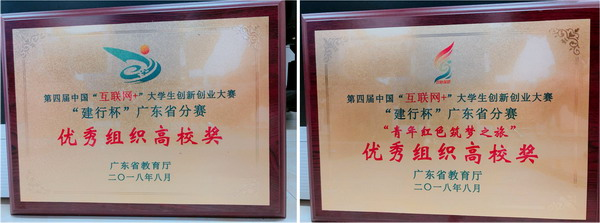 第四届中国“互联网+”大学生创新创业大赛
“建行杯”广东省分赛
优秀组织高校奖
广东省教育厅
二〇一八年八月
第四届中国“互联网+”大学生创新创业大赛
“建行杯”广东省分赛
“青年红色筑梦之旅”
优秀组织高校奖
广东省教育厅
二〇一八年八月